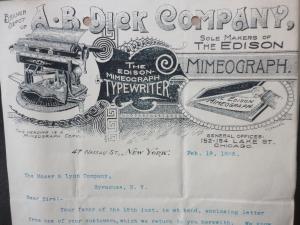 BRANCH DEPOT OF
A.B. DICK COMPANY,
SOLE MAKERS OF
THE EDISON
MIMEOGRAPH.
THE EDISON-MIMEOGRAPH TYPEWRITER
EDISON MIMEOGRAPH
THIS HEADING IS A MIMEOGRAPH COPY.
GENERAL OFFICES:
152-154 LAKE ST.
CHICAGO.
47 NASSAU ST., NEW YORK.
Feb. 19,
The Moser & Lyon Company,
Syracuse, N. Y.
Dear Sirs:-
Your favor of the 18th inst. is at hand, enclosing letter
from one of your customers, which we return to you herewith. We